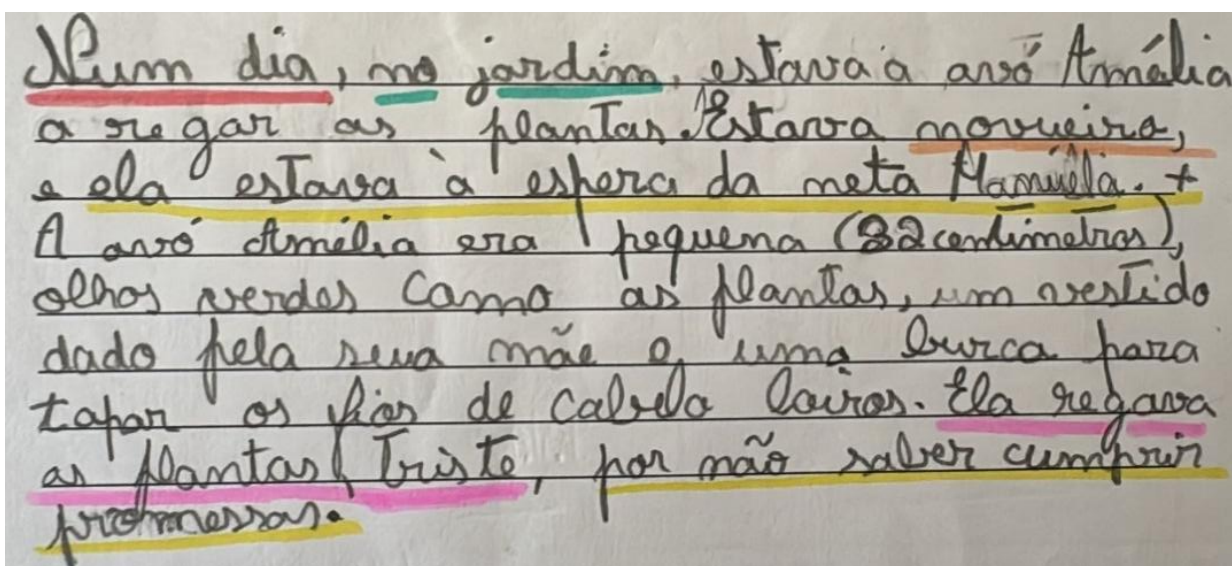 Num dia, no jardim, estava a avó Amélia
a regar as plantas. Estava
e ela estava à espera da neta Manuela. +
A avó Amélia era pequena (32 centímetros),
olhos verdes como as plantas, um vestido
dado pela sua mãe e uma burca para
tapar os fios de cabelo loiros. Ela regava
as plantas triste, por não saber cumprir
promessas.